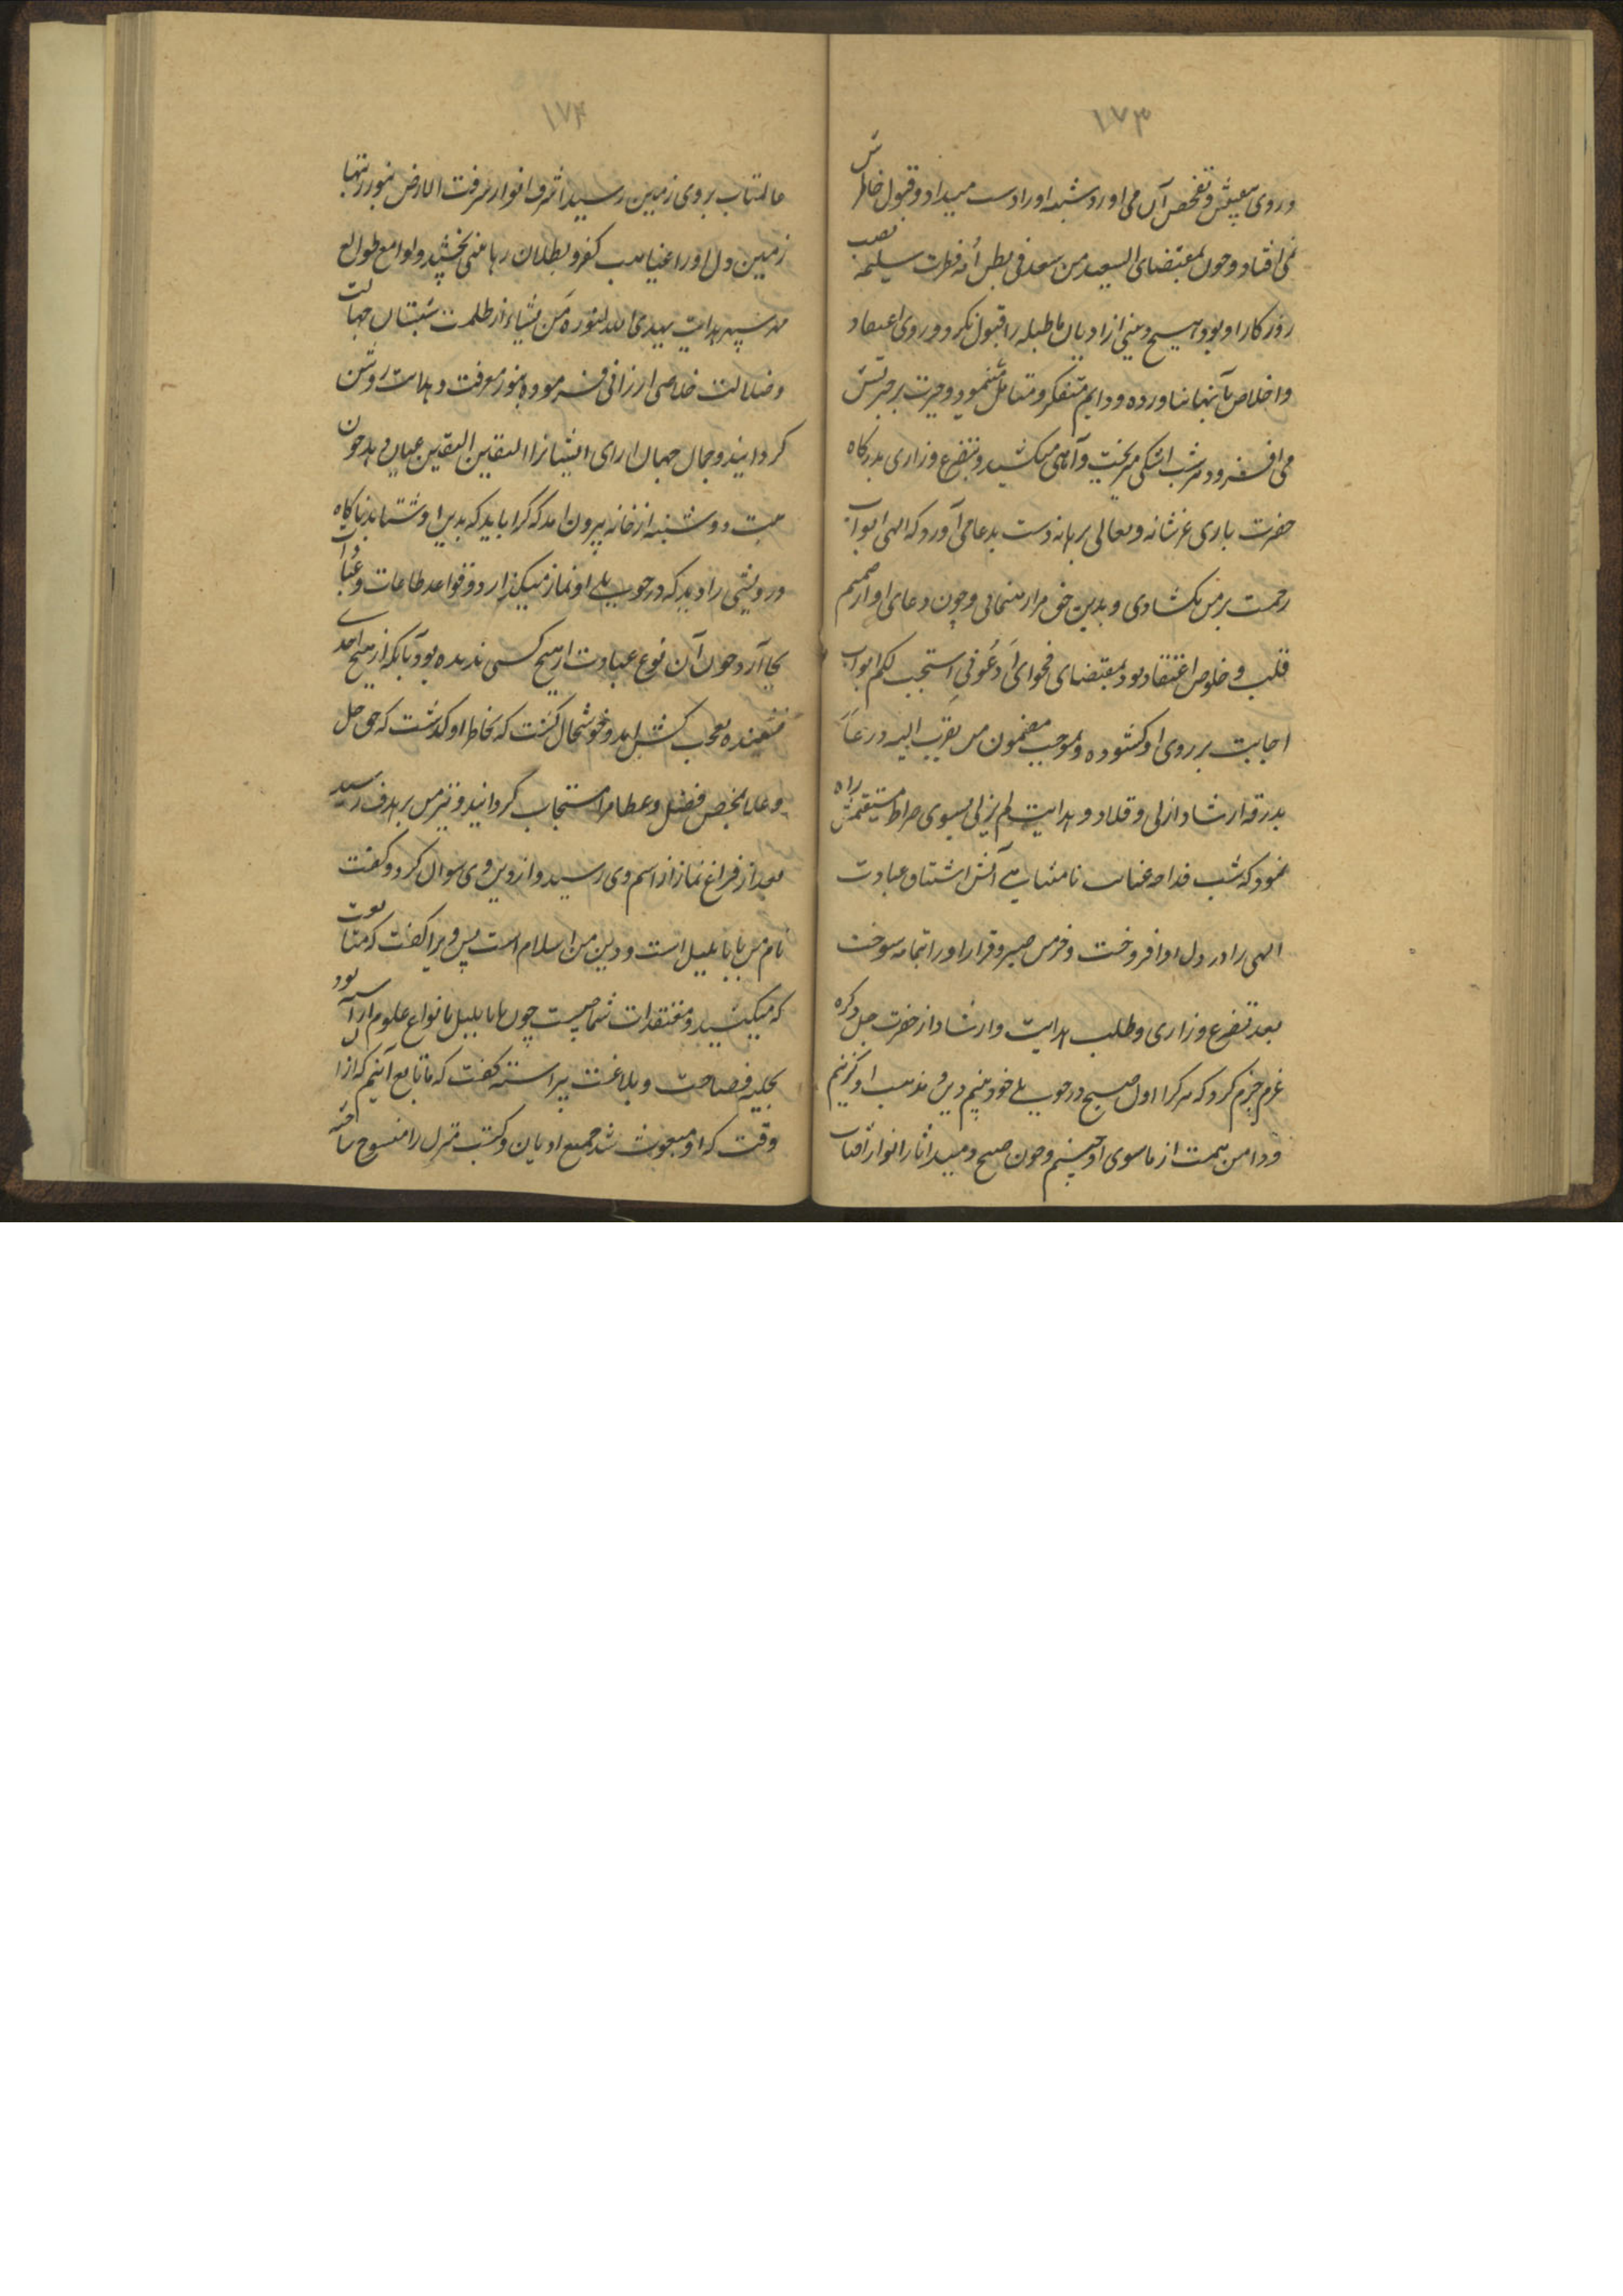 ۱۷۳
و روی بتعیش و تفحص آن می اورد شبهه اورا دست میداد و قبول خاطرش
نمی افتاد و چون بمقتضای السعید من سعد فی بطن أمه فطرت سلیمه نصیب
روزکار او بود هیچ دینی از ادیان باطله را قبول نکرد و روی اعتقاد
و اخلاص بآنها نیاورده و دایم متفکر و متامل میبود و حیرت بر حیرتش
می افزود و هر شب اشکی میریخت و آهی میکشید و بتضرع و زاری بدرکاه
حضرت باری عز شانه و تعالی برهانه دست بدعا می آورد که الهی ابواب
رحمت بر من بکشادی و بدین حق مرا رهنمائی و چون دعای او از صمیم
قلب و خلوص اعتقاد بود بمقتضای فحوای أدعونی استجب لکم ابواب
اجابت بر روی او کشوده و بموجب مضمون من تقرب الیه ذرعاً
بدرقه ارشاد ازلی و قلاد و هدایت لم یزلی بسوی صراط مستقیمش راه
نمود که شب عنایت نامتناهی آتش اشتیاق عبادت
الهی را در دل او افروخت و خرمن صبر و قرار اورا بتمامه سوخت
بعد تضرع و زاری و طلب هدایت و ارشاد از حضرت جل ذکره
عزم جزم کرد که هرکرا اول صبح در حویلی خود بینم دین و مذهب او کزینم
و دامن همت از ماسوی او چینم و چون صبح دمید اثار انوار آفتاب
۱۷۴
عالمتاب بروی زمین رسید اشرف انوار شرقت الارض بنور ربها
زمین دل اورا غیاهب کفر و بطلان رهائی بخشید و لوامع طوالع
مهر سپهر هدایت یهدی الله لنوره من یشاء از ظلمت شبستان جهالت
و ضلالت خلاصی ارزانی فرموده بنور معرفت و هدایت روشن
کردانید و جمال جهان ارای ایشانرا الیقین الیقین عیان دید چون
دوشنبه از خانه بیرون امد که کرا باید که بدین او شتابد ناکاه
درویشی را دید که در حویلی او نماز میکزارد و قواعد طاعات و عبادات
بجا آرد چون آن نوع عبادت از هیچ کسی ندیده بود بآنکه از هیچ احدی
نشنیده تعجب کنان شد و خوشحال کشت که بخاطر او کذشت که حق جل
و علا بمحض فضل و عطا مرا مستجاب کردانید و تیر من بر هدف رسید
بعد از فراغ نماز از اسم وی رسید و از دین وی سوال کرد و کفت
نام من بابا بلبل است و دین من اسلام است پس ویرا کفت که متابعت
که میکنید و معتقدات شما چیست چون بابا بلبل بانواع علوم آراسته بود
بحلیه فصاحت و بلاغت پیراسته کفت که ما تابع آنیم که از آن
وقت که او مبعوث شد جمیع ادیان و کتب منزل را منسوخ ساخته